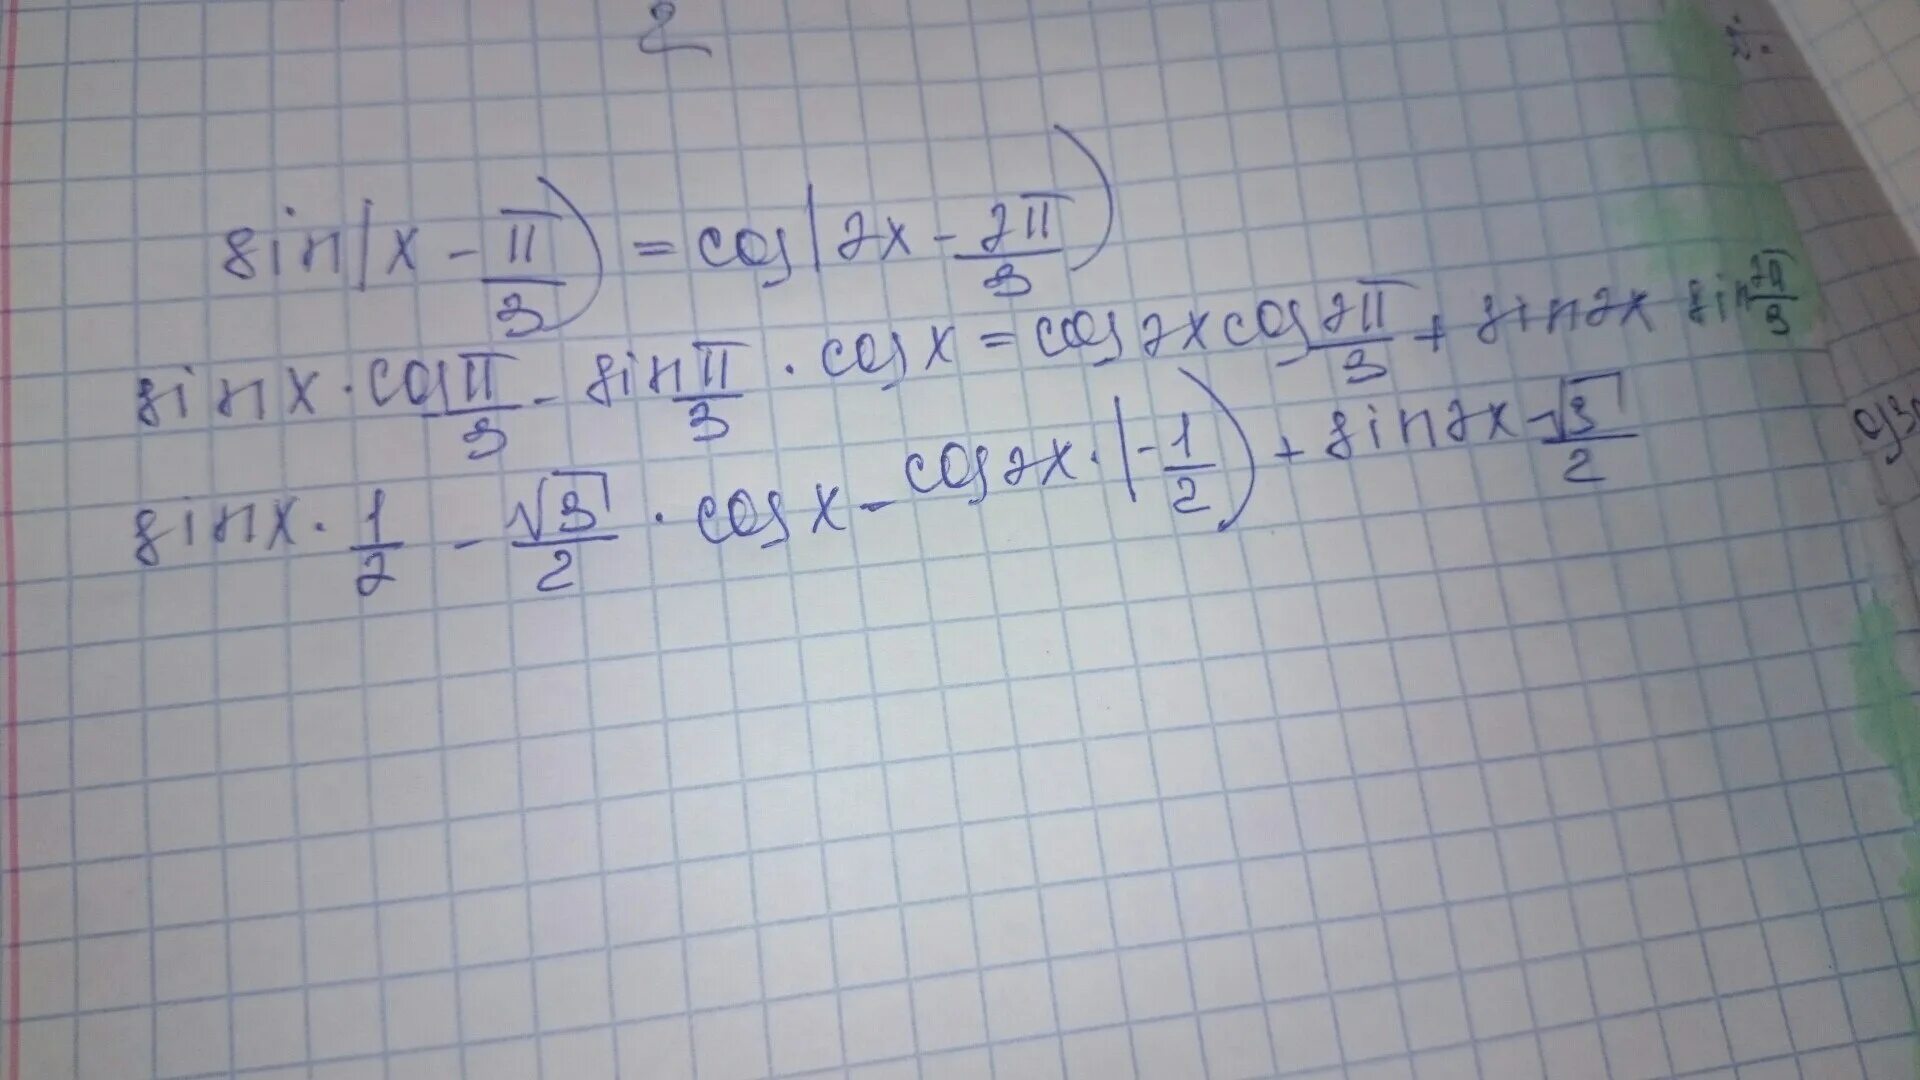 2
sin(x - π/3) = cos(2x - 2π/3)
sinx · cos π/3 - sin π/3 · cosx = cos2x cos 2π/3 + sin2x sin 2π/3
sinx · 1/2 - √3/2 · cosx - cos2x · (-1/2) + sin2x - √3/2